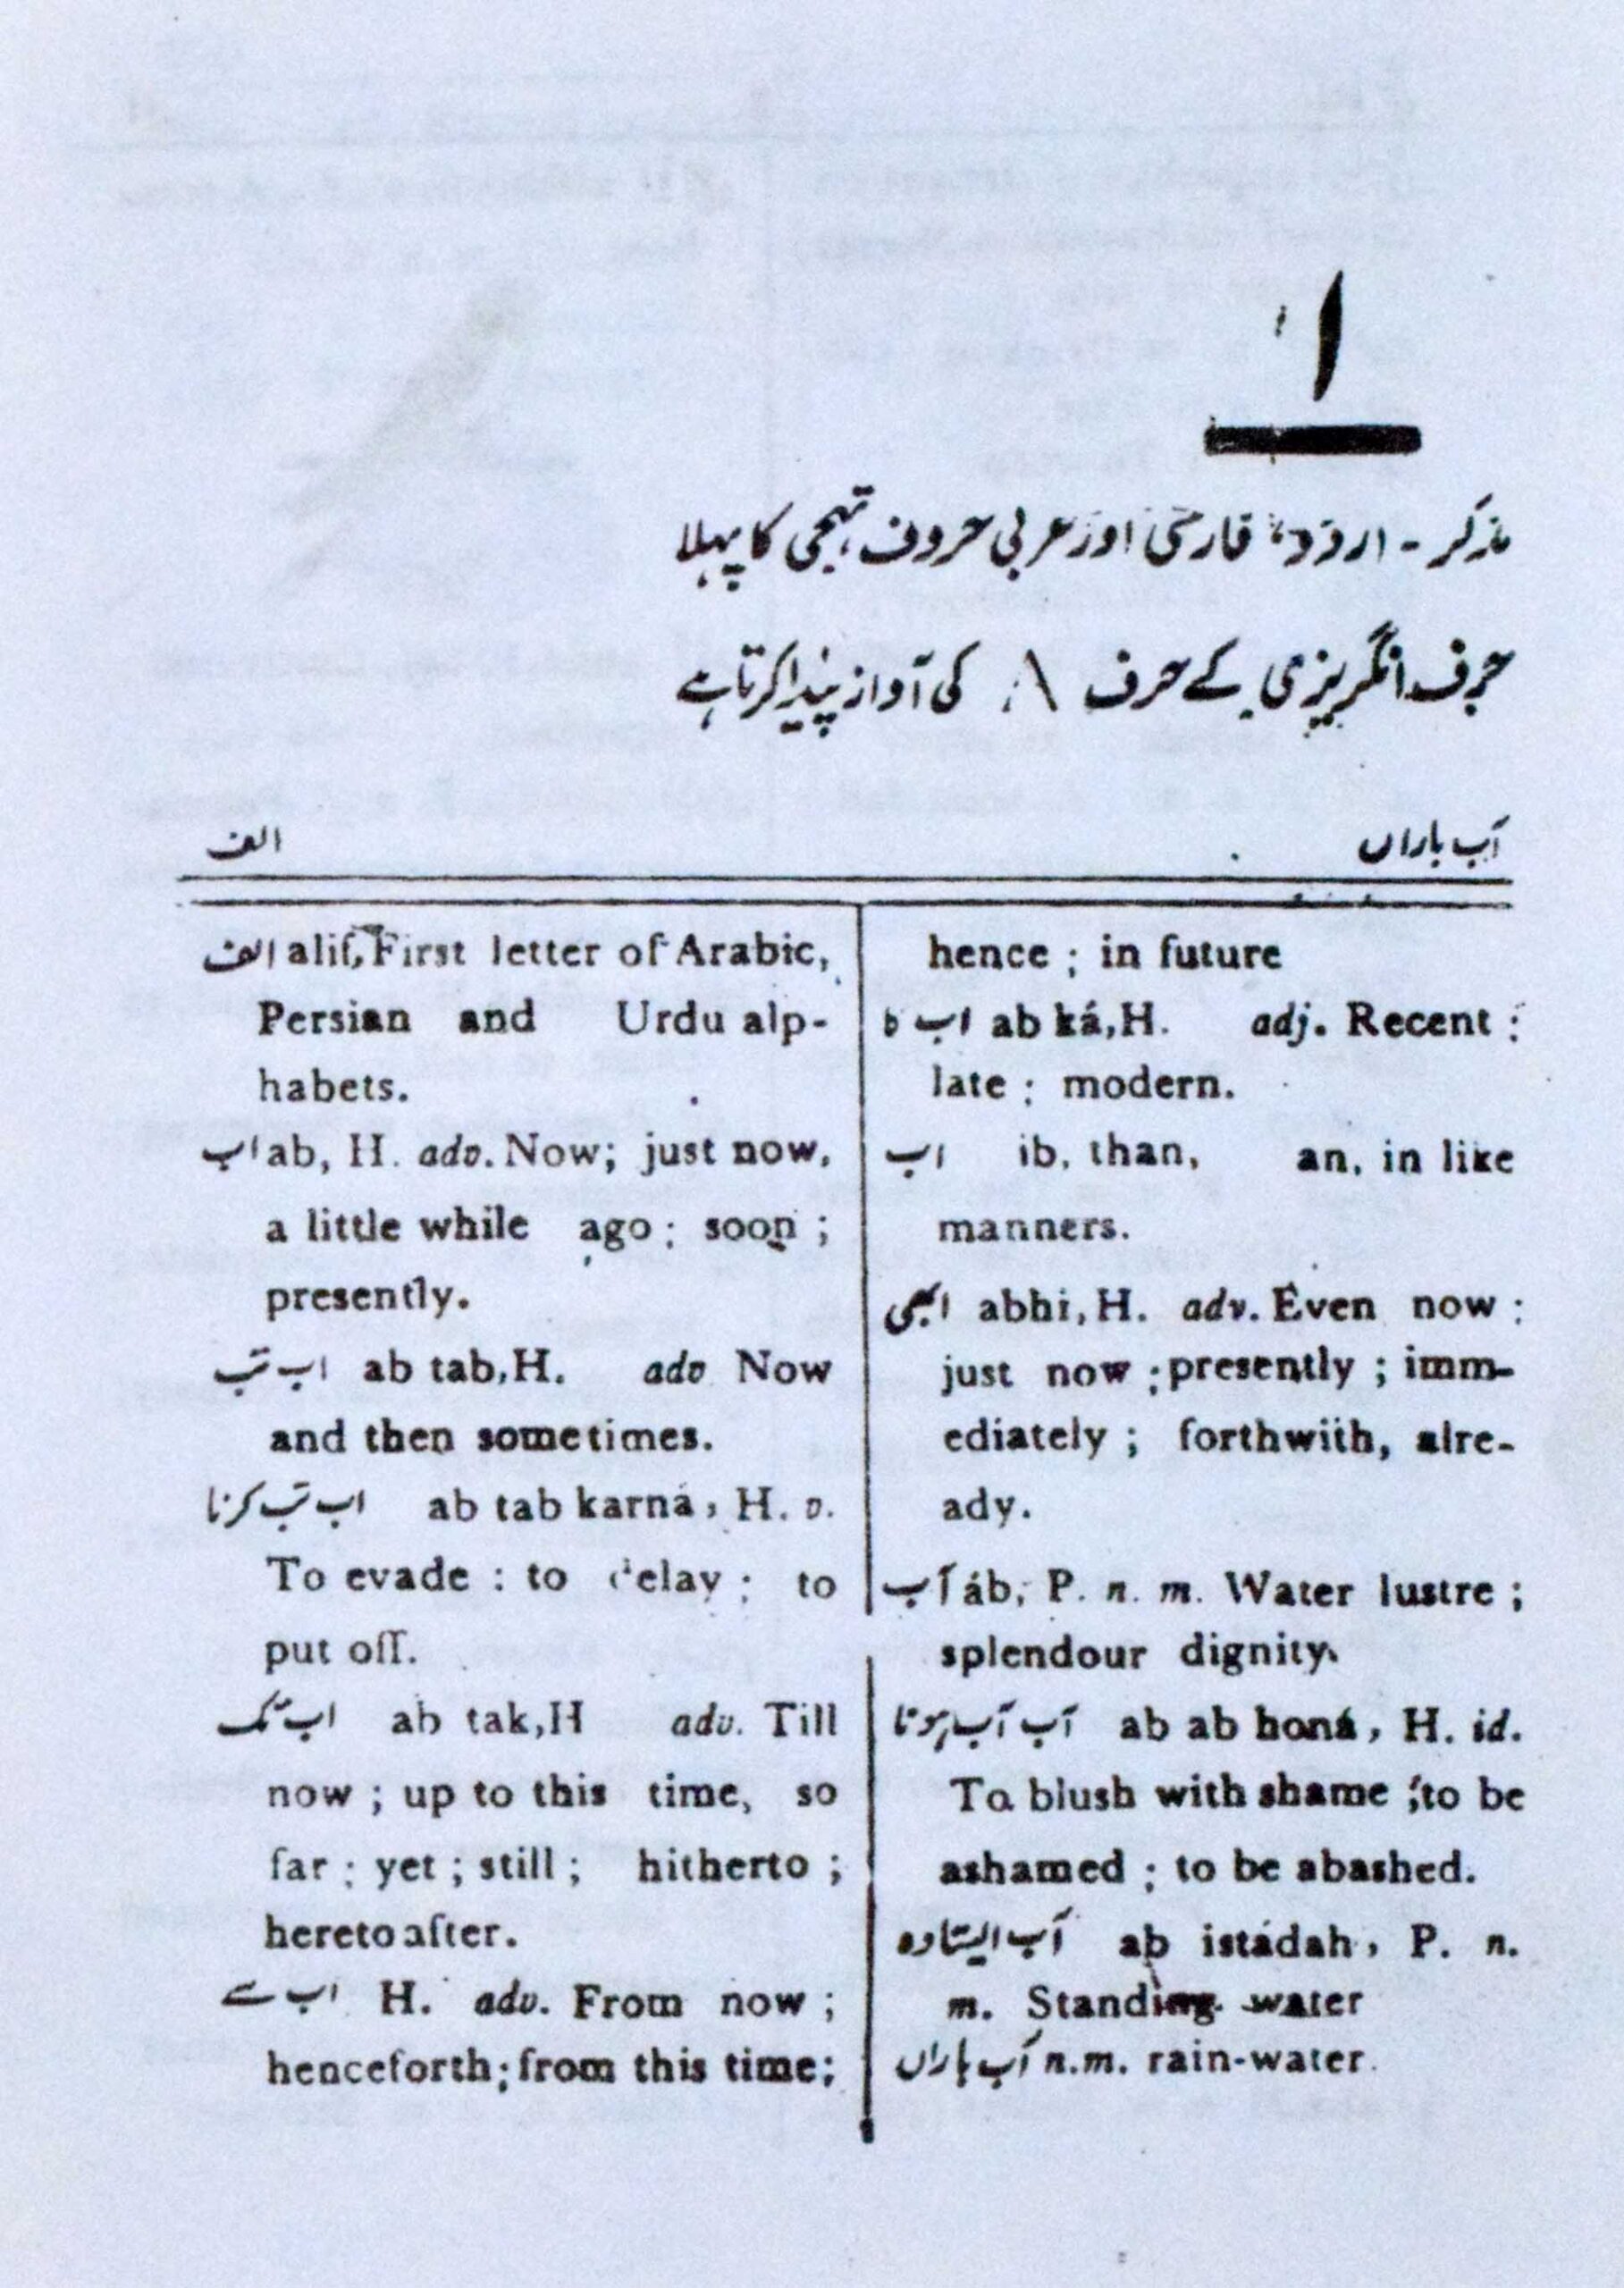 ا
مذکر - اردو، فارسی اور عربی حروف تہجی کا پہلا
حرف انگریزی کے حرف A کی آواز پیدا کرتا ہے
الف
آب باراں
الف alif, First letter of Arabic,
Persian and Urdu alp-
habets.
اب ab, H. adv. Now; just now,
a little while ago; soon ;
presently.
اب تب ab tab, H. adv Now
and then sometimes.
اب تب کرنا ab tab karná, H. v.
To evade : to delay ; to
put off.
اب تک ab tak, H adv. Till
now ; up to this time, so
far ; yet ; still ; hitherto ;
heretoafter.
اب سے H. adv. From now ;
henceforth; from this time;
hence ; in future
اب کا ab ká, H. adj. Recent ;
late ; modern.
اب ib, than, an, in like
manners.
ابھی abhi, H. adv. Even now ;
just now ; presently ; imm-
ediately ; forthwith, alre-
ady.
آب áb, P. n. m. Water lustre ;
splendour dignity.
آب آب ہونا ab ab honá, H. id.
To blush with shame ; to be
ashamed ; to be abashed.
آب ایستادہ ab istádah, P. n.
m. Standing water
آب باراں n.m. rain-water.